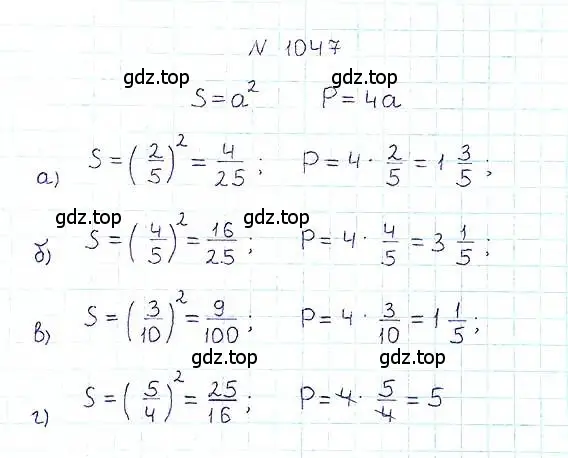 N 1047
gdz.top gdz.top
S = a² P = 4a
gdz.top gdz.top
а) S = (2/5)² = 4/25; P = 4 · 2/5 = 1 3/5;
gdz.top gdz.top
б) S = (4/5)² = 16/25; P = 4 · 4/5 = 3 1/5;
gdz.top gdz.top
в) S = (3/10)² = 9/100; P = 4 · 3/10 = 1 1/5;
gdz.top gdz.top
г) S = (5/4)² = 25/16; P = 4 · 5/4 = 5